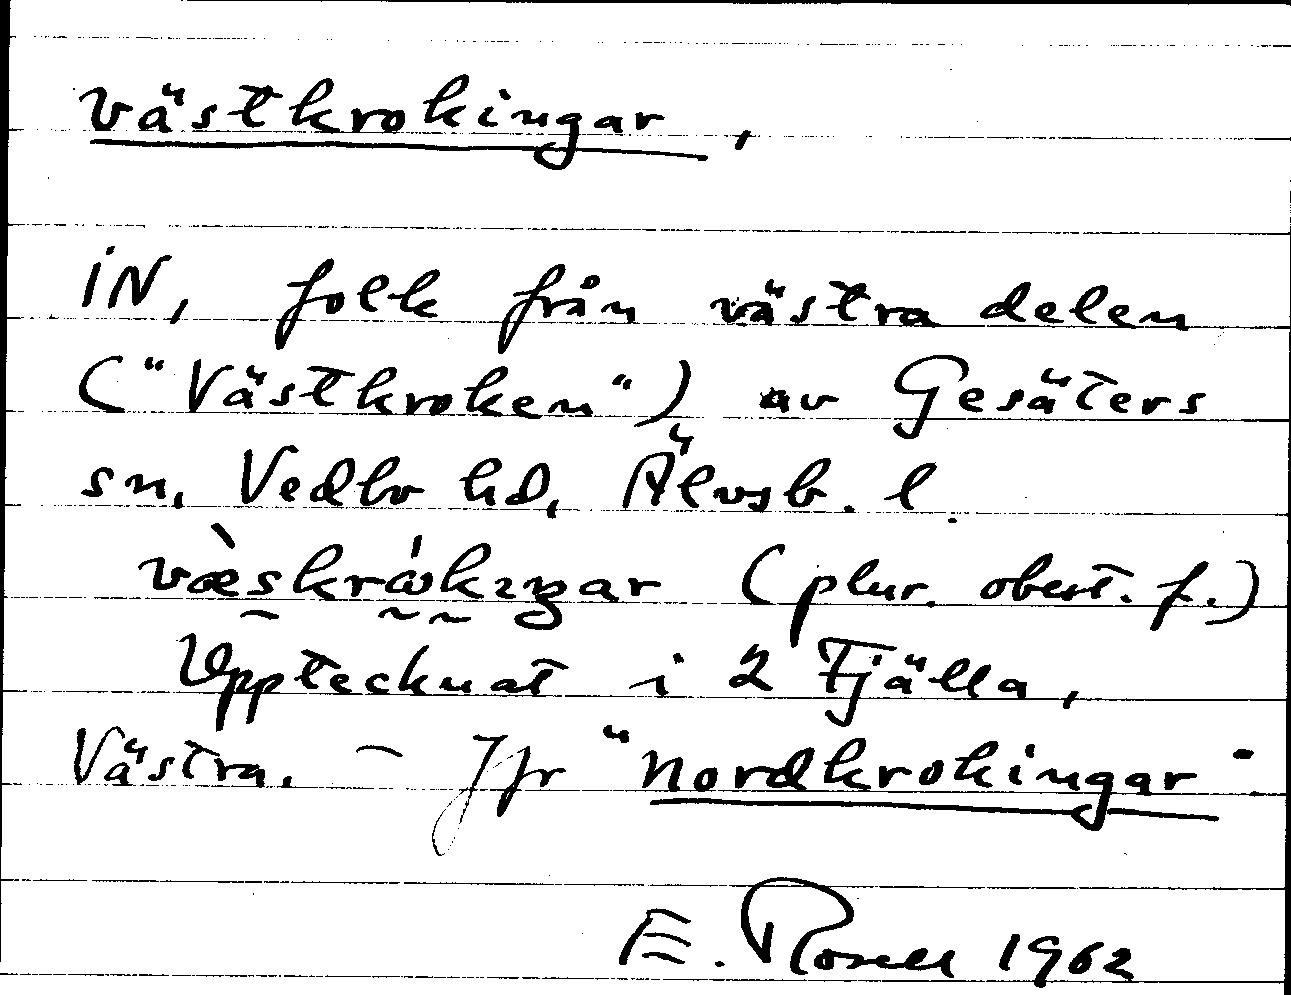 västkrokingar,
IN, folk från västra delen
("Västkroken") av Gesäters
sn, Vedbo hd, Älvsb. l.
(plur. obest. f.)
Upptecknat i 2 Fjälla,
Västra. - Jfr "nordkrokingar"
E. Rosell 1962